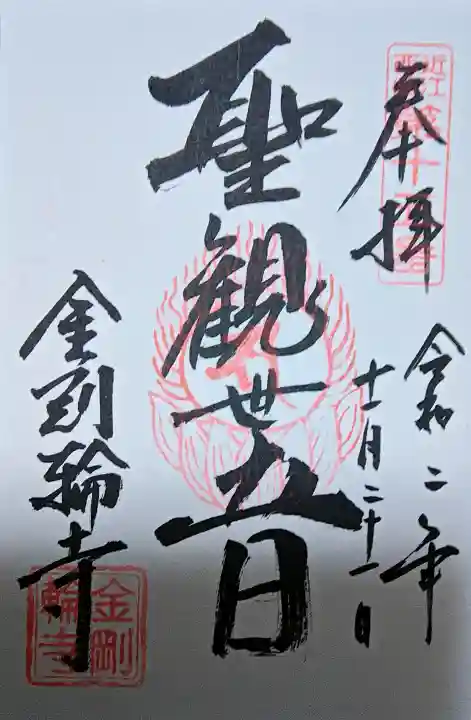 奉拝
令和二年
十一月二十一日
聖観世音
金剛輪寺
近江西国第十五番
金剛輪寺